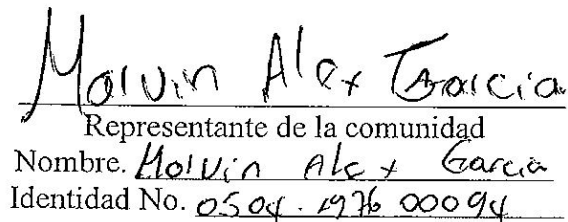 Molvin Alex Garcia
Representante de la comunidad
Nombre. Molvin Alex Garcia
Identidad No. 0504. 1976 00094